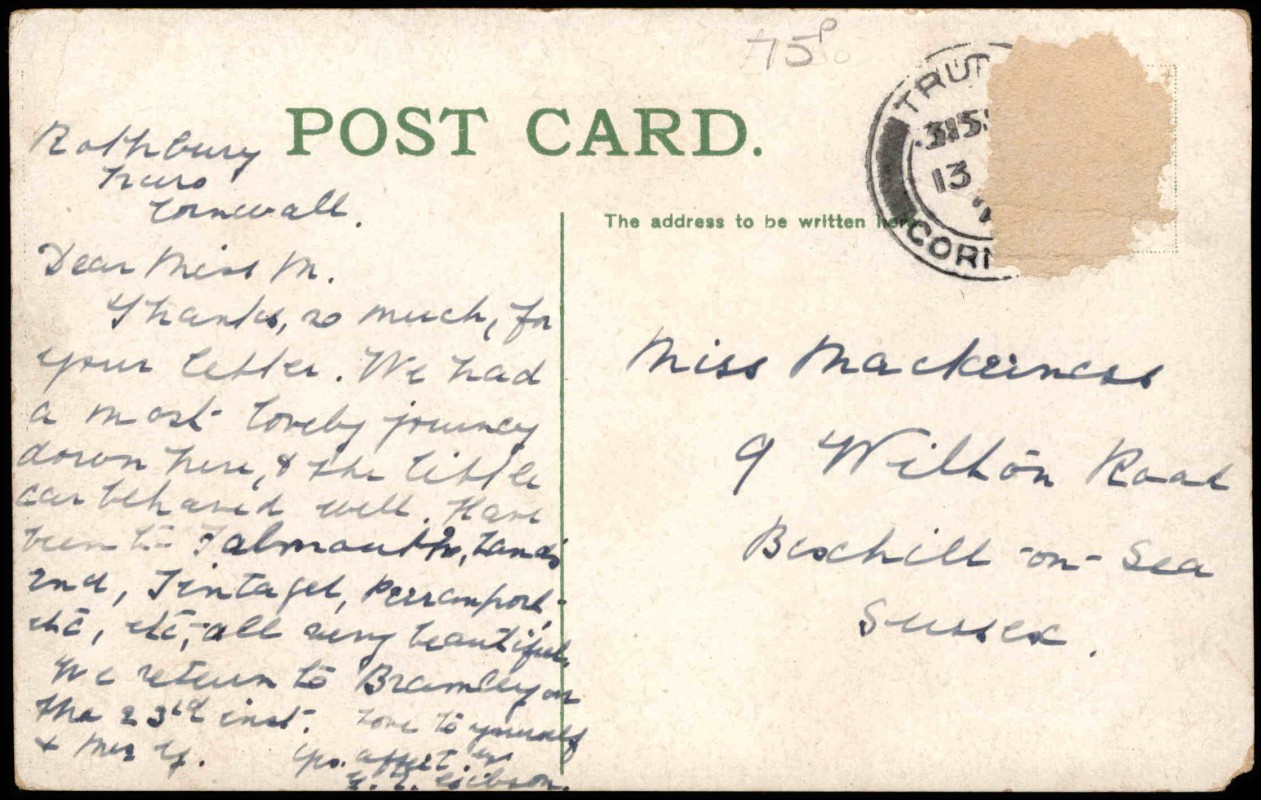 POST CARD.
The address to be written here
TRU
3 15
13
CORN
Rothbury
Truro
Cornwall.
Dear Miss M.
Thanks, so much, for
your letter. We had
a most lovely journey
down here, & the little
car behaved well. Have
been to Falmouth, Lands
End, Tintagel, Perranport,
etc, etc, all very beautiful.
We return to Bramley on
the 23rd inst. Love to yourself
& Mrs
Yrs. affect
Gibson.
Miss Mackerness
9 Wilton Road
Bexhill-on-Sea
Sussex.